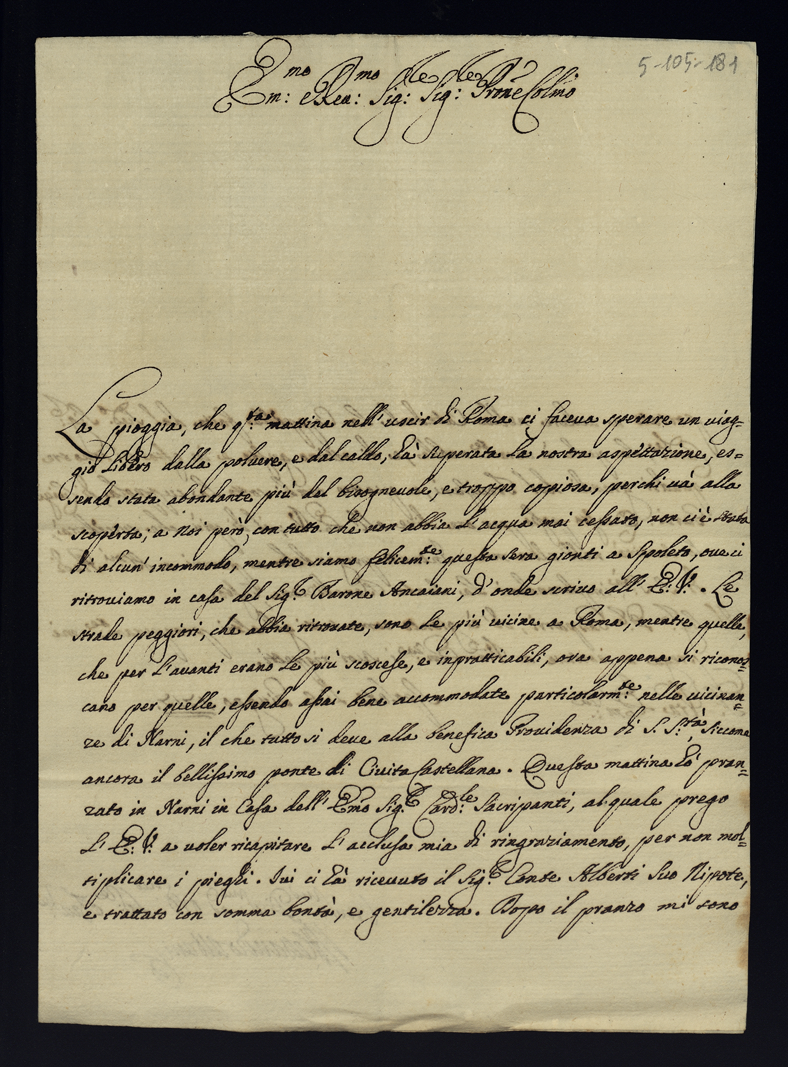 5-105-181
Em:mo e Rev:mo Sig:re Sig:re Prone Colmo
La pioggia, che q.ta mattina nell'uscir di Roma ci faceva sperare un viag=
gio libero dalla polvere, e dal caldo, hà superata la nostra aspettazione, es=
sendo stata abondante più del bisognevole, e troppo copiosa, perchi và alla
scoperta; a Noi però, con tutto che non abbia l'acqua mai cessato, non ci è stata
di alcun' incommodo, mentre siamo felicem:te questa sera gionti a Spoleto, ove ci
ritroviamo in casa del Sig:r Barone Ancaiani, d'onde scrivo all' E: V: . Le
strade peggiori, che abbia ritrovate, sono le più vicine a Roma, mentre quelle,
che per l'avanti erano le più scoscese, e inpratticabili, ora appena si ricono=
scano per quelle, essendo assai bene accommodate particolarm:te nelle vicinan=
ze di Narni, il che tutto si deve alla benefica Providenza di S. S.tà, siccome
ancora il bellissimo ponte di Civita Castellana. Questa mattina hò pran=
zato in Narni in Casa dell' Emo Sig:r Card:le Sacripanti, al quale prego
l' E: V: a voler ricapitare l'acclusa mia di ringraziamento, per non mol=
tiplicare i pieghi. Ivi ci hà ricevuto il Sig:r Conte Alberti suo Nipote,
e trattato con somma bontà, e gentilezza. Dopo il pranzo mi sono